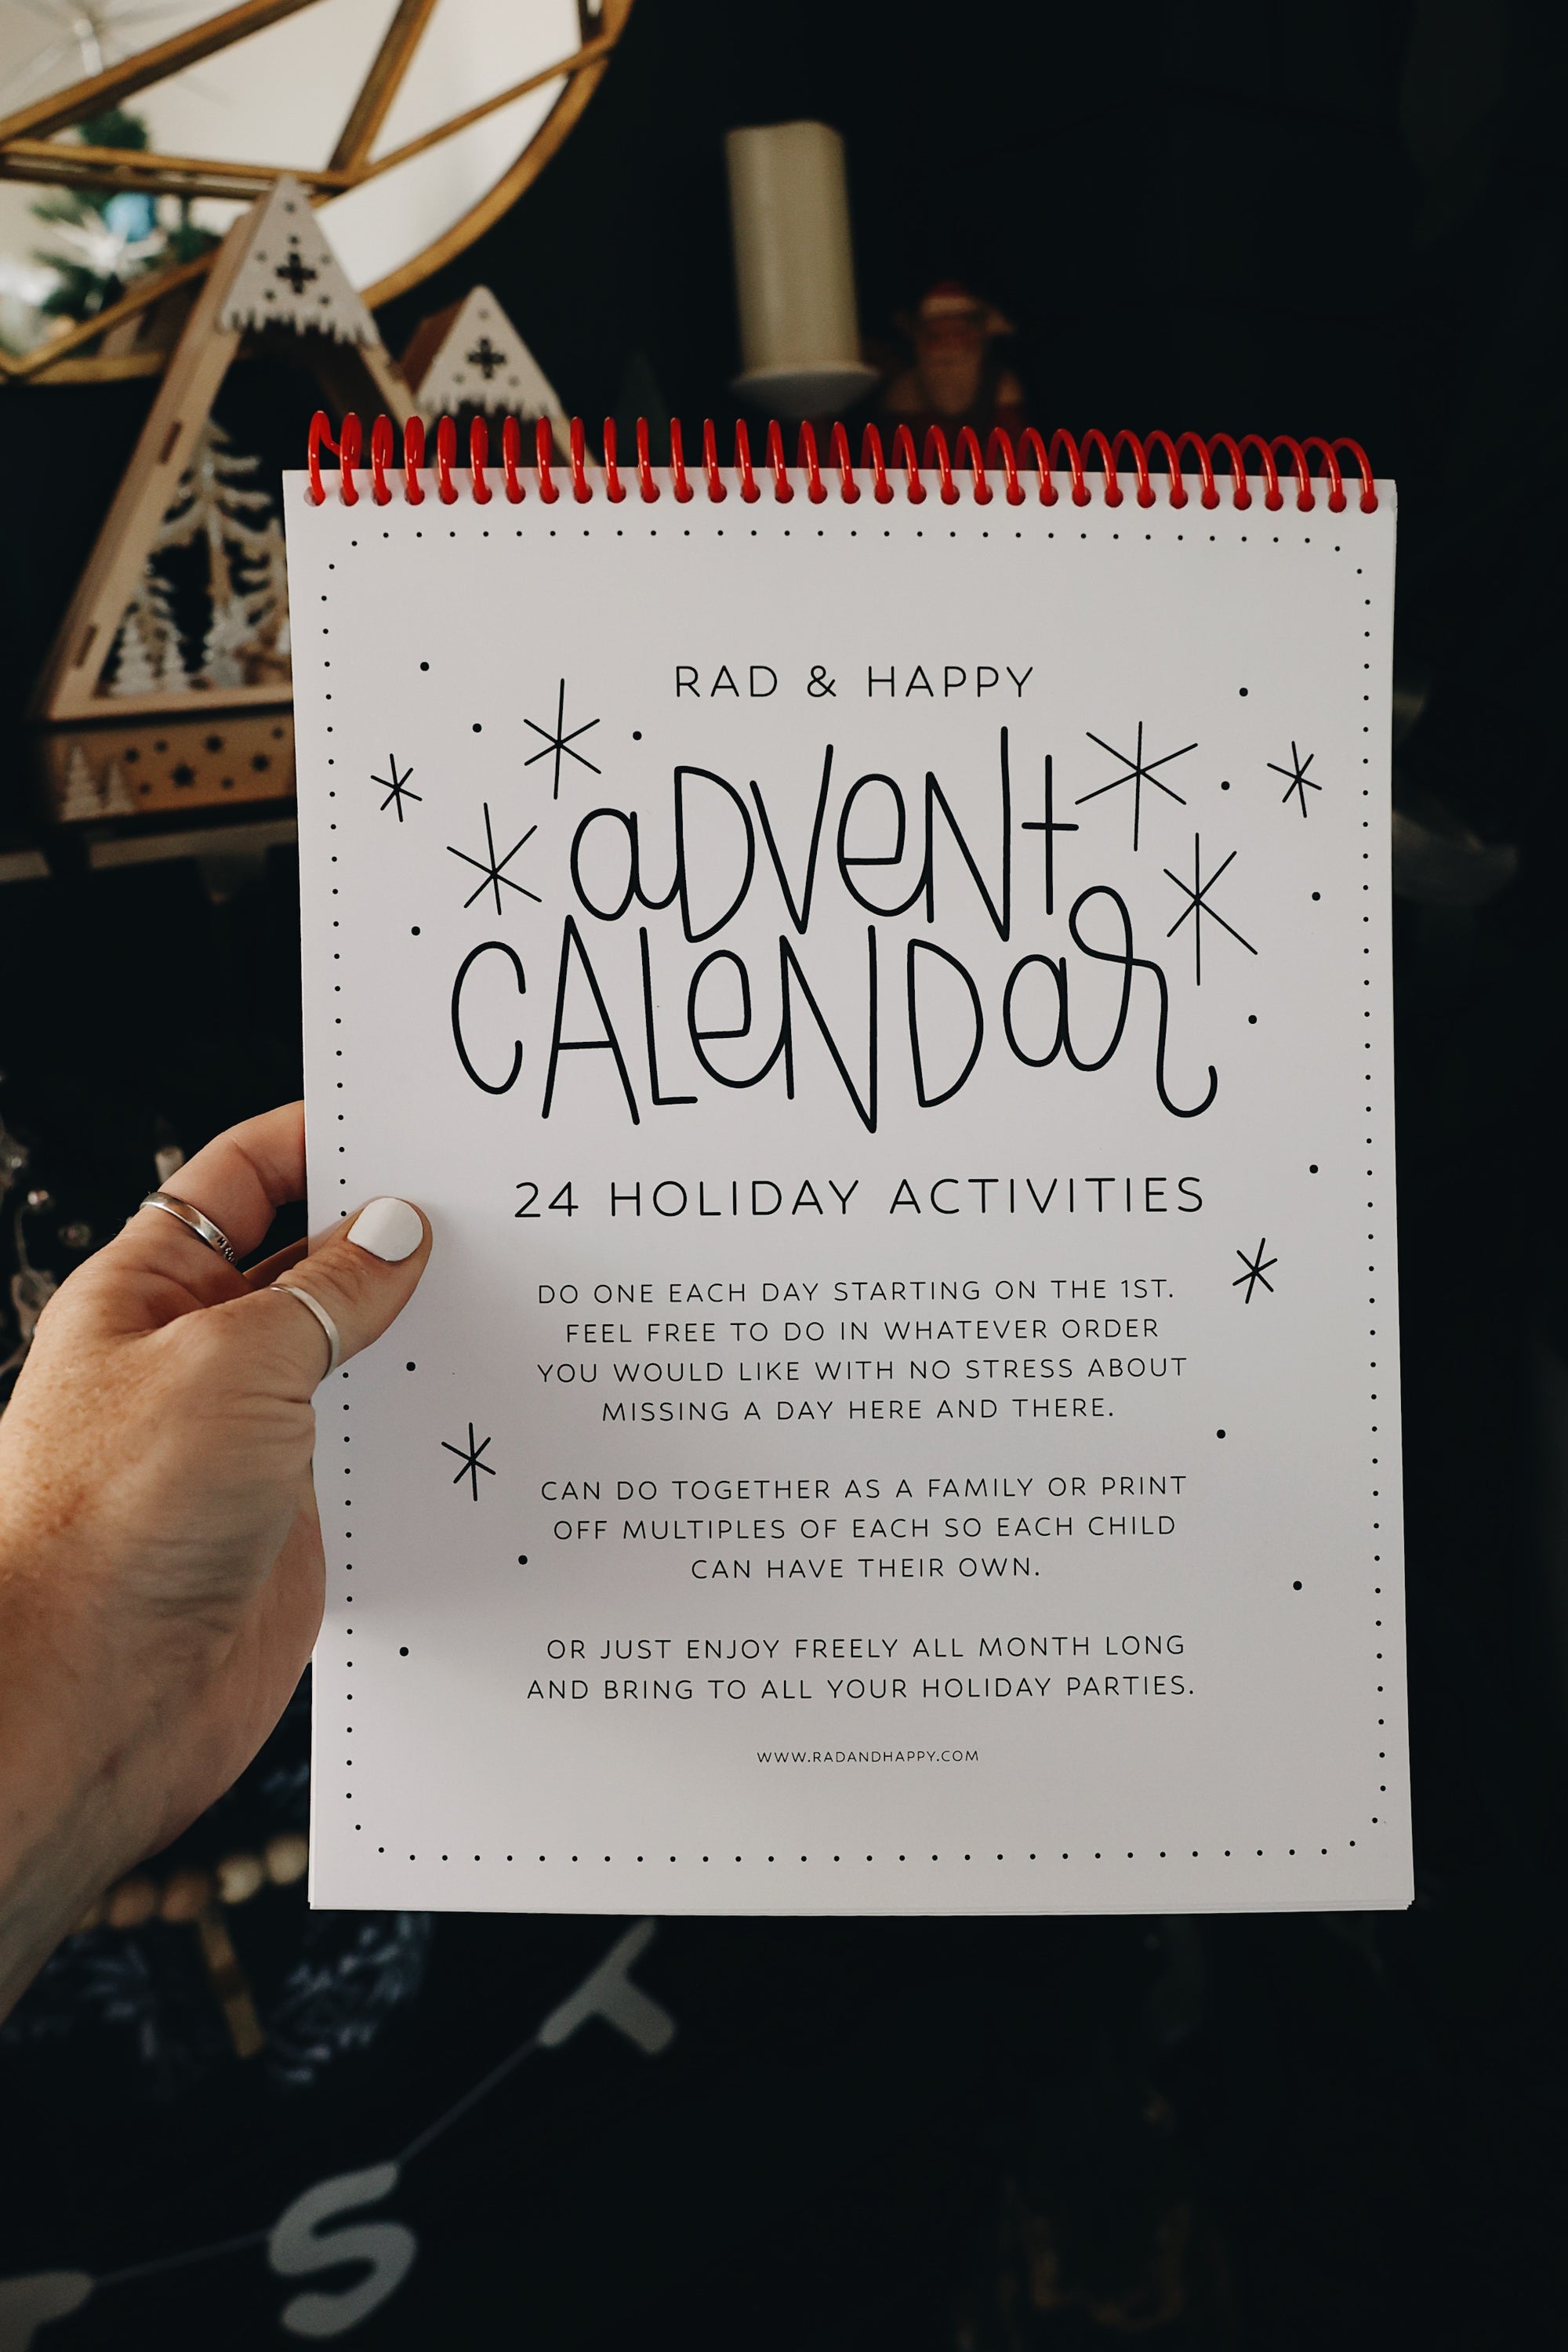 RAD & HAPPY
aDVeNt
CALeNDar
24 HOLIDAY ACTIVITIES
DO ONE EACH DAY STARTING ON THE 1ST.
FEEL FREE TO DO IN WHATEVER ORDER
YOU WOULD LIKE WITH NO STRESS ABOUT
MISSING A DAY HERE AND THERE.
CAN DO TOGETHER AS A FAMILY OR PRINT
OFF MULTIPLES OF EACH SO EACH CHILD
CAN HAVE THEIR OWN.
OR JUST ENJOY FREELY ALL MONTH LONG
AND BRING TO ALL YOUR HOLIDAY PARTIES.
WWW.RADANDHAPPY.COM